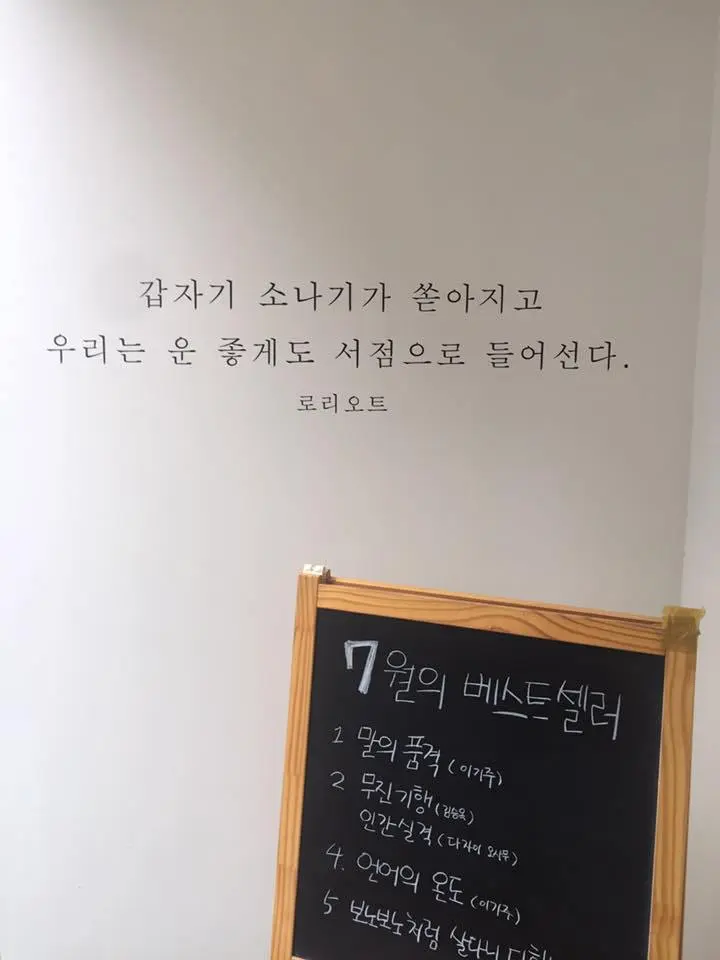 갑자기 소나기가 쏟아지고
우리는 운 좋게도 서점으로 들어선다.
로리오트
7월의 베스트셀러
1 말의 품격 (이기주)
2 무진기행 (김승옥)
인간실격 (다자이 오사무)
4. 언어의 온도 (이기주)
5 보노보노처럼 살다니 다행